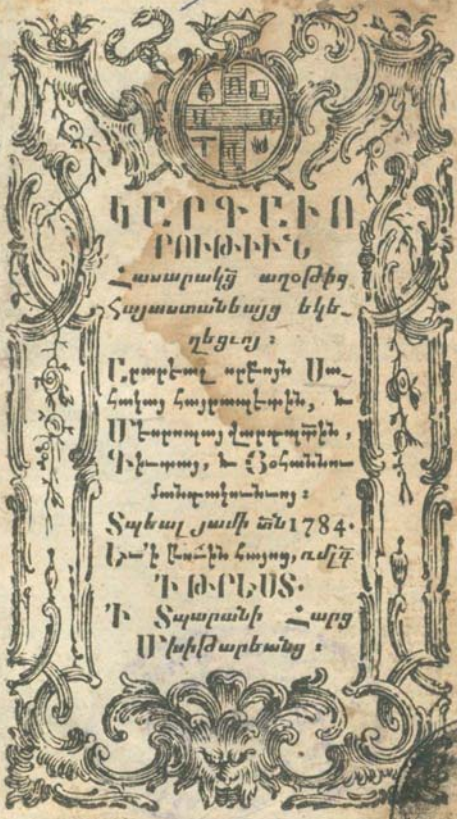 ԿԱՐԳԱՒՈ
ՐՈՒԹԻՒՆ
Հասարակց̃ աղօթից
Հայաստանեայց եկե-
ղեցւոյ։
Արարեալ սրբոյն Սա-
հակայ հայրապետին, և
Մեսրոպայ վարդապտ̃ին,
Գիւտայ, և Յօհաննու
մանդակունւոյ։
Տպեալ յամի տն̃ 1784.
Եւ ՚ի Թուին հայոց, ռմլգ̃
՚Ի ԹՐԵՍՏ.
՚Ի Տպարանի Հարց
Մխիթարեանց։